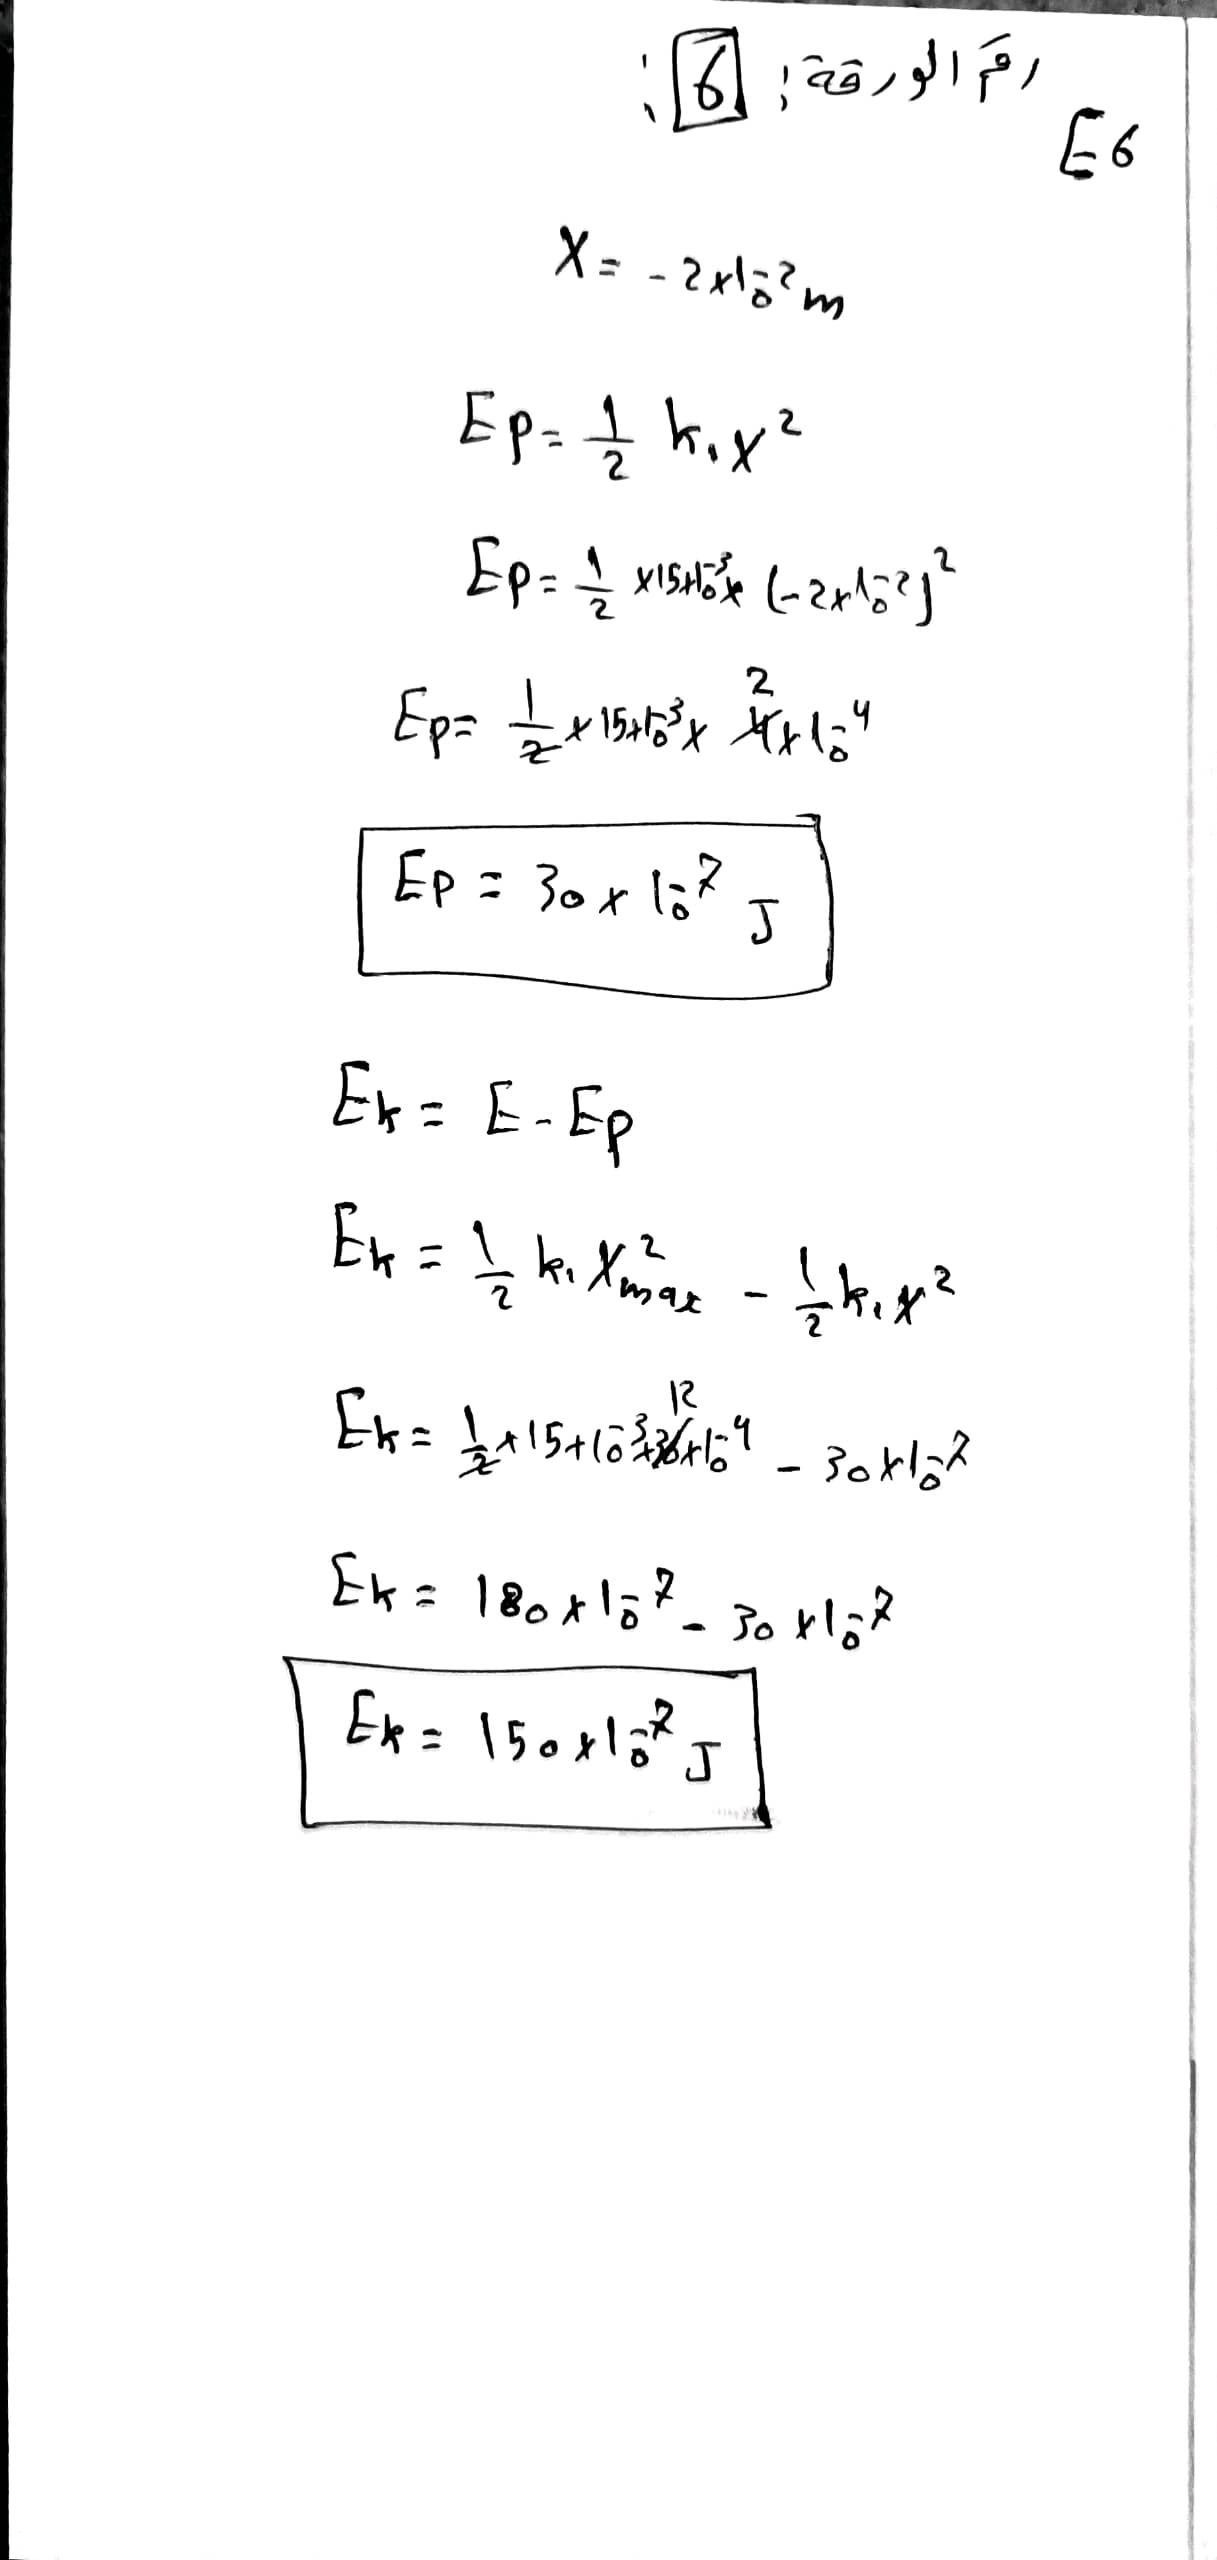 رقم الورقة: 6 :
E6
X = - 2×10⁻² m
Ep = 1/2 k . x²
Ep = 1/2 ×15×10⁻³× (-2×10⁻²)²
Ep = 1/2 × 15×10⁻³ × 4 2 ×10⁻⁴
Ep = 30 × 10⁻⁷ J
Ek = E - Ep
Ek = 1/2 k . X²max - 1/2 k . x²
Ek = 1/2 × 15×10⁻³× 12 ×10⁻⁴ - 30×10⁻⁷
Ek = 180×10⁻⁷ - 30×10⁻⁷
Ek = 150×10⁻⁷ J